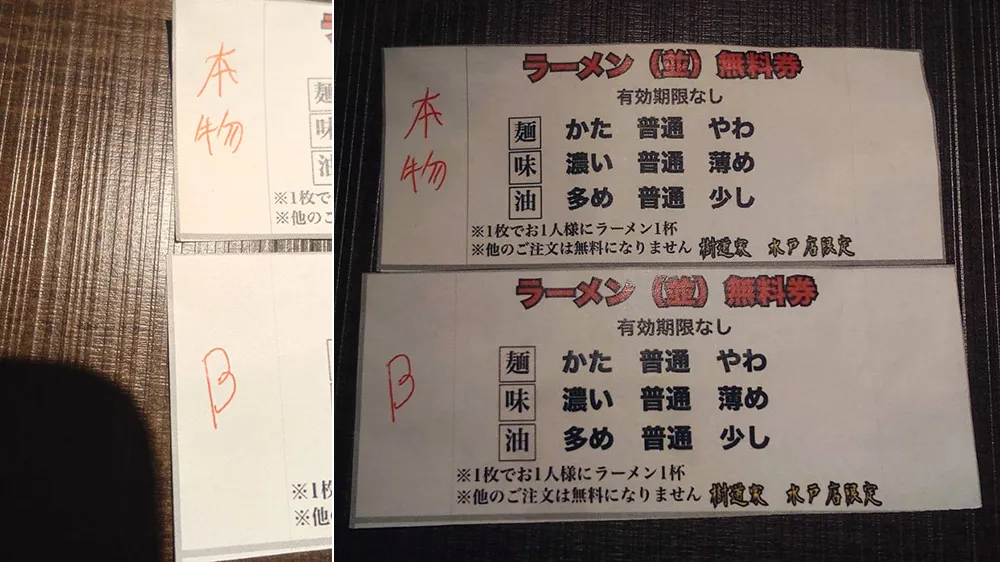 本
物
麺
味
油
※1枚で
※他のご
β
※1枚
※他
ラーメン(並)無料券
有効期限なし
本
物
麺 かた 普通 やわ
味 濃い 普通 薄め
油 多め 普通 少し
※1枚でお1人様にラーメン1杯
※他のご注文は無料になりません 樹道家 水戸店限定
ラーメン(並)無料券
有効期限なし
β
麺 かた 普通 やわ
味 濃い 普通 薄め
油 多め 普通 少し
※1枚でお1人様にラーメン1杯
※他のご注文は無料になりません 樹道家 水戸店限定